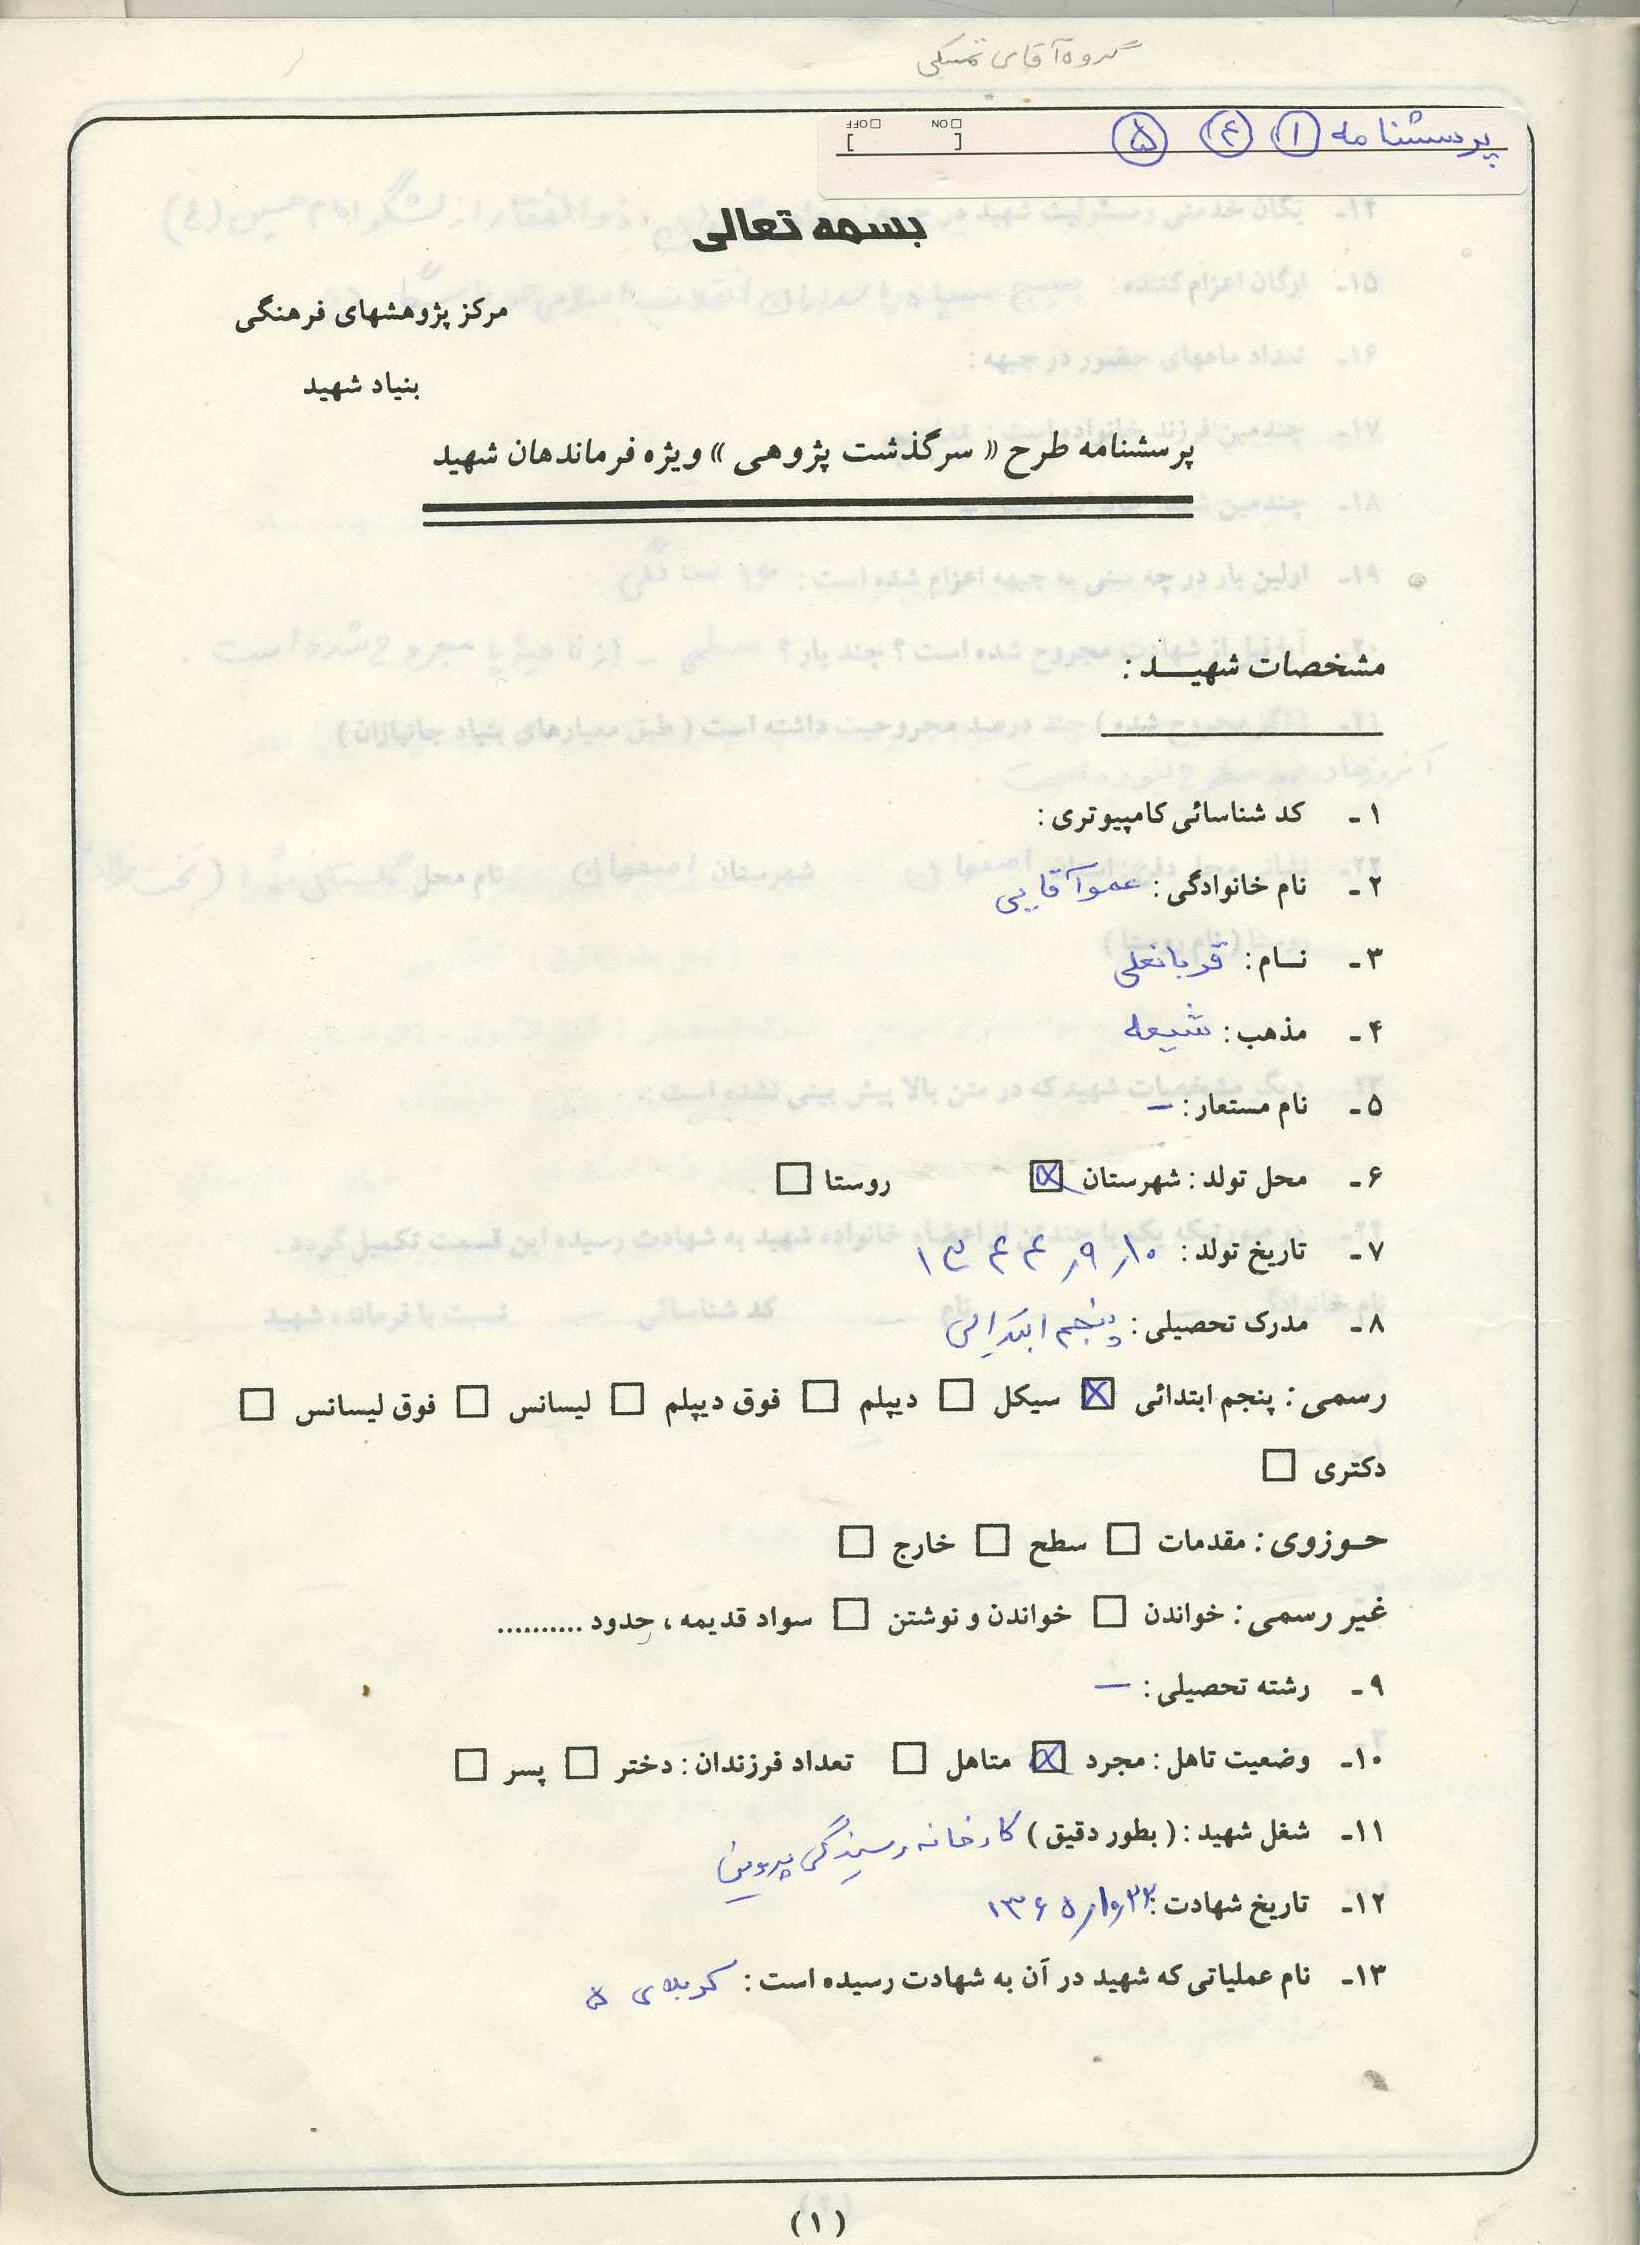 گروه آقای تمسکی
پرسشنامه ۱ ۴ ۵
ON OFF
[ ]
بسمه تعالی
مرکز پژوهشهای فرهنگی
بنیاد شهید
پرسشنامه طرح « سرگذشت پژوهی » ویژه فرماندهان شهید
مشخصات شهیـــد :
۱ـ کد شناسائی کامپیوتری :
۲ـ نام خانوادگی : عموآقایی
۳ـ نـام : قربانعلی
۴ـ مذهب : شیعه
۵ـ نام مستعار : –
۶ـ محل تولد : شهرستان ☒ روستا □
۷ـ تاریخ تولد : ۱۰ر۹ر۱۳۴۴
۸ـ مدرک تحصیلی : پنجم ابتدایی
رسمی : پنجم ابتدائی ☒ سیکل □ دیپلم □ فوق دیپلم □ لیسانس □ فوق لیسانس □
دکتری □
حـوزوی : مقدمات □ سطح □ خارج □
غیر رسمی : خواندن □ خواندن و نوشتن □ سواد قدیمه ، حدود ..........
۹ـ رشته تحصیلی : –
۱۰ـ وضعیت تاهل : مجرد ☒ متاهل □ تعداد فرزندان : دختر □ پسر □
۱۱ـ شغل شهید : ( بطور دقیق ) کارخانه ریسندگی پروین
۱۲ـ تاریخ شهادت : ۲۲ر۱۰ر۱۳۶۵
۱۳ـ نام عملیاتی که شهید در آن به شهادت رسیده است : کربلای ۵
( ۱ )